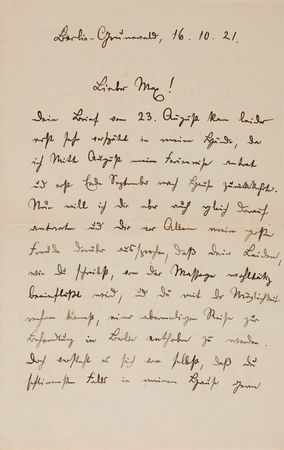 Berlin-Grunewald, 16.10.21.
Lieber Max!
Dein Brief vom 23. August kam leider
erst sehr verspätet in meine Hände, da
ich Mitte August meine Ferienreise antrat
und erst Ende September nach Hause zurückkehrte.
Nun will ich Dir aber auch gleich darauf
antworten und Dir vor Allem meine große
Freude darüber aussprechen, daß Dein Leiden,
wie Du schreibst, von der Massage wohltätig
beeinflußt wird, und Du mit der Möglichkeit
rechnen kannst, einer abermaligen Reise zur
Behandlung in Berlin enthoben zu werden.
Doch versteht es sich von selbst, daß Du
schlimmsten Falls in meinem Hause gern